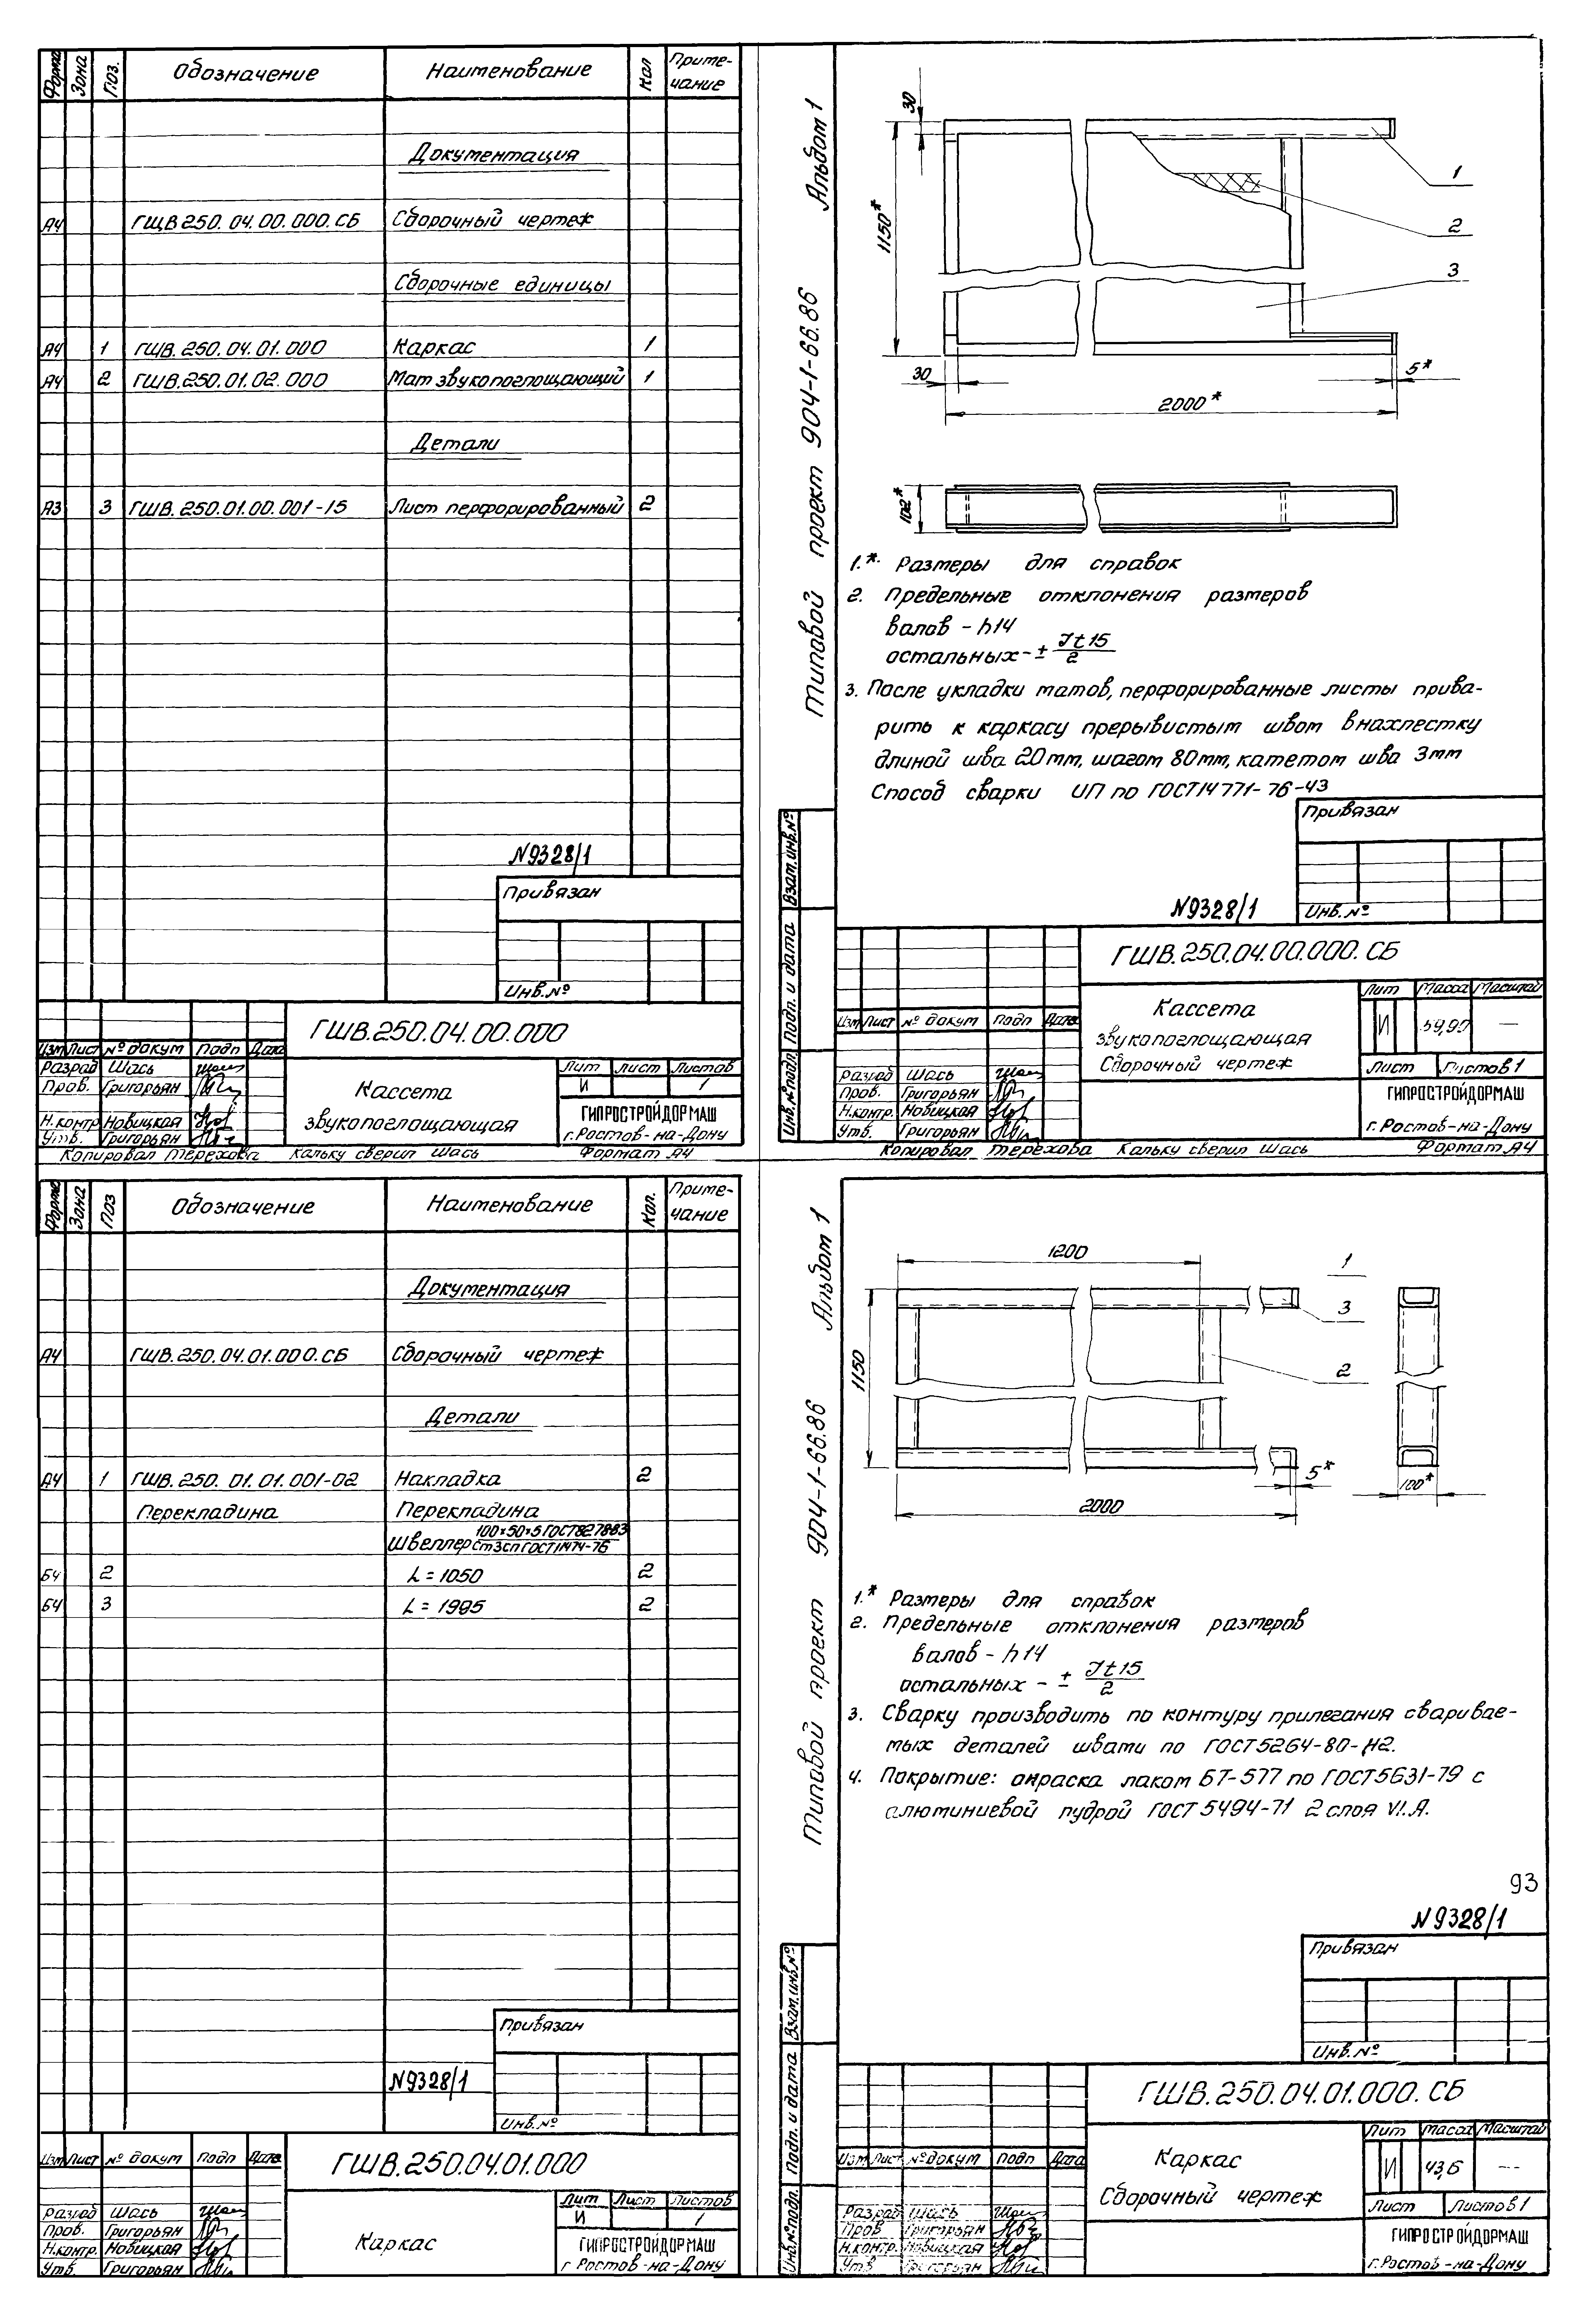 Форма Зона Поз. Обозначение Наименование Кол Приме-
чание
Документация
А4 ГШВ 250.04.00.000.СБ Сборочный чертеж
Сборочные единицы
А4 1 ГШВ.250.04.01.000 Каркас 1
А4 2 ГШВ.250.01.02.000 Мат звукопоглощающий 1
Детали
А3 3 ГШВ.250.01.00.001-15 Лист перфорированный 2
N9328/1
Привязан
Инв.№
ГШВ.250.04.00.000
Изм Лист № докум Подп Дата
Разраб Шась
Пров. Григорьян
Н.контр Новицкая
Утв. Григорьян
Кассета
звукопоглощающая
Лит Лист Листов
И 1
ГИПРОСТРОЙДОРМАШ
г.Ростов-на-Дону
Копировал Терехова Кальку сверил Шась Формат А4
Типовой проект 904-1-66.86 Альбом 1
30
1150*
1
2
3
30
5*
2000*
102*
1.* Размеры для справок
2. Предельные отклонения размеров
валов - h14
остальных - ± Jt15/2
3. После укладки матов, перфорированные листы прива-
рить к каркасу прерывистым швом внахлестку
длиной шва 20мм, шагом 80мм, катетом шва 3мм
Способ сварки ИП по ГОСТ14771-76-Н3
Привязан
N9328/1
Инв.№
Взам.инв.№
Подп. и дата
Инв.№подл.
ГШВ.250.04.00.000.СБ
Изм Лист № докум Подп Дата
Разраб Шась
Пров. Григорьян
Н.контр. Новицкая
Утв. Григорьян
Кассета
звукопоглощающая
Сборочный чертеж
Лит Масса Масштаб
И —
Лист Листов 1
ГИПРОСТРОЙДОРМАШ
г.Ростов-на-Дону
Копировал Терехова Кальку сверил Шась Формат А4
Форма Зона Поз Обозначение Наименование Кол. Приме-
чание
Документация
А4 ГШВ.250.04.01.000.СБ Сборочный чертеж
Детали
А4 1 ГШВ.250.01.01.001-02 Накладка 2
Перекладина Перекладина
Швеллер 100×50×5 ГОСТ8278-83
Ст3сп ГОСТ11474-76
БЧ 2 L = 1050 2
БЧ 3 L = 1995 2
Привязан
N9328/1
Инв.№
ГШВ.250.04.01.000
Изм Лист № докум Подп Дата
Разраб Шась
Пров. Григорьян
Н.контр. Новицкая
Утв. Григорьян
Каркас
Лит Лист Листов
И 1
ГИПРОСТРОЙДОРМАШ
г Ростов-на-Дону
Типовой проект 904-1-66.86 Альбом 1
1200
1
3
1150
2
5*
100*
2000
1.* Размеры для справок
2. Предельные отклонения размеров
валов - h14
остальных - ± Jt15/2
3. Сварку производить по контуру прилегания сваривае-
мых деталей швами по ГОСТ5264-80-Н2.
4. Покрытие: окраска лаком БТ-577 по ГОСТ5631-79 с
алюминиевой пудрой ГОСТ 5494-71 2 слоя VI.А.
93
N9328/1
Привязан
Инв.№
Взам.инв.№
Подп. и дата
Инв.№подл.
ГШВ.250.04.01.000.СБ
Изм Лист № докум Подп Дата
Разраб Шась
Пров Григорьян
Н.контр. Новицкая
Утв Григорьян
Каркас
Сборочный чертеж
Лит Масса Масштаб
И 43,6 —
Лист Листов 1
ГИПРОСТРОЙДОРМАШ
г.Ростов-на-Дону